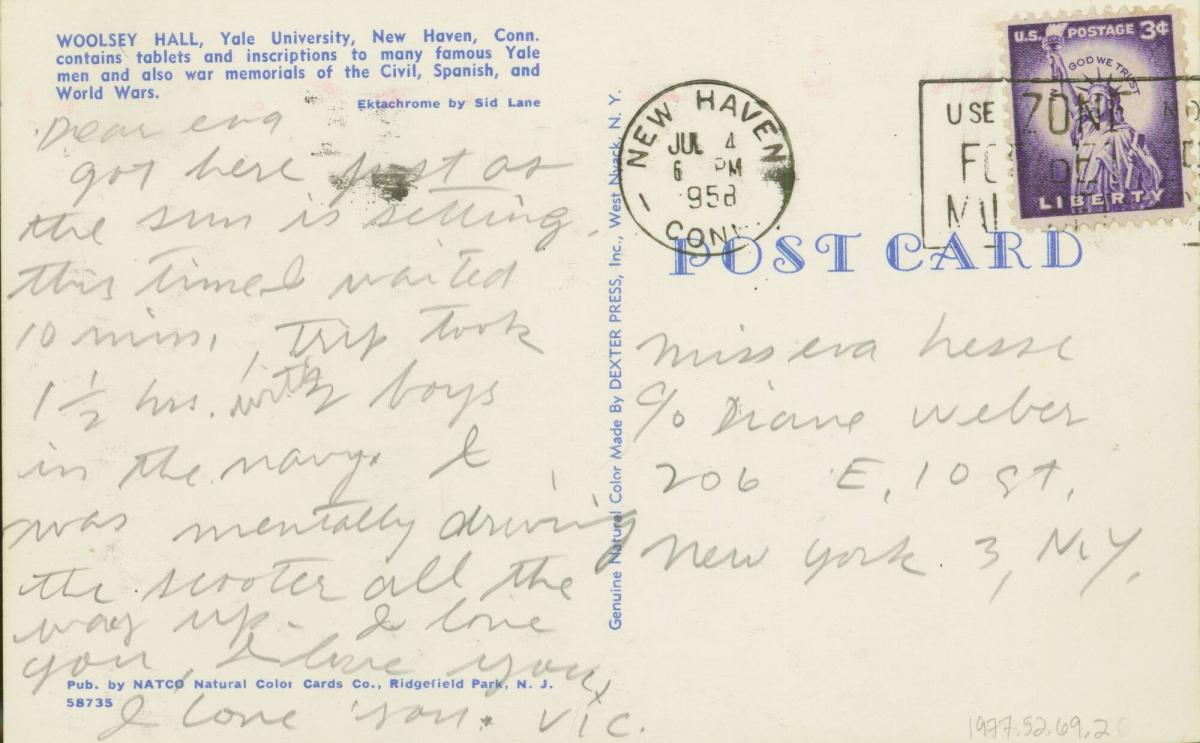 WOOLSEY HALL, Yale University, New Haven, Conn.
contains tablets and inscriptions to many famous Yale
men and also war memorials of the Civil, Spanish, and
World Wars.
Ektachrome by Sid Lane
Dear eva
got here just as
the sun is setting.
this time I waited
10 mins, trip took
1 1/2 hrs. with boys
in the navy. I
was mentally driving
the scooter all the
way up. I love
you, I love you,
I love you. Vic.
Pub. by NATCO Natural Color Cards Co., Ridgefield Park, N. J.
58735
Genuine Natural Color Made By DEXTER PRESS, Inc., West Nyack, N. Y.
NEW HAVEN
JUL 4
6 PM
1958
CONN
U.S. POSTAGE 3¢
IN GOD WE TRUST
LIBERTY
USE ZONE
POST CARD
miss eva hesse
c/o Diane weber
206 E. 10 st.
new york 3, N.Y.
1977.52.69.2